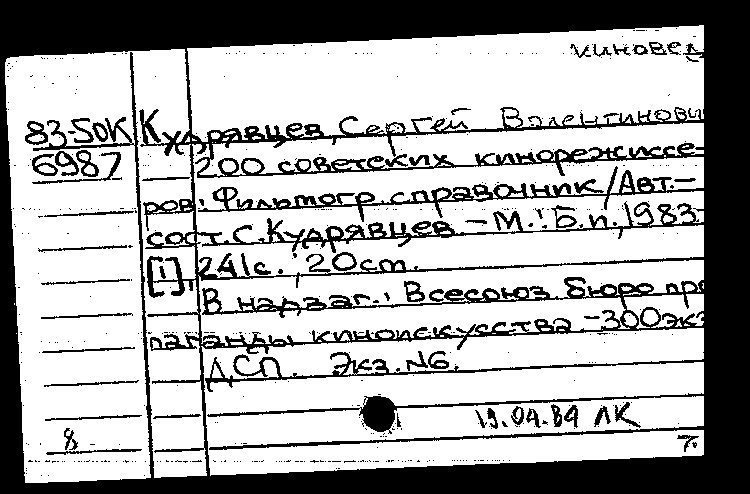 киновед
83-50К Кудрявцев, Сергей Валентинови
6987 200 советских кинорежиссе-
ров: Фильмогр. справочник/Авт.-
сост. С. Кудрявцев. – М.: Б.и., 1983.
[1], 241с.; 20cm.
В надзаг.: Всесоюз. бюро про
паганды киноискусства. -300экз
ДСП. Экз. №6.
19.04.84 ЛК
8 7.